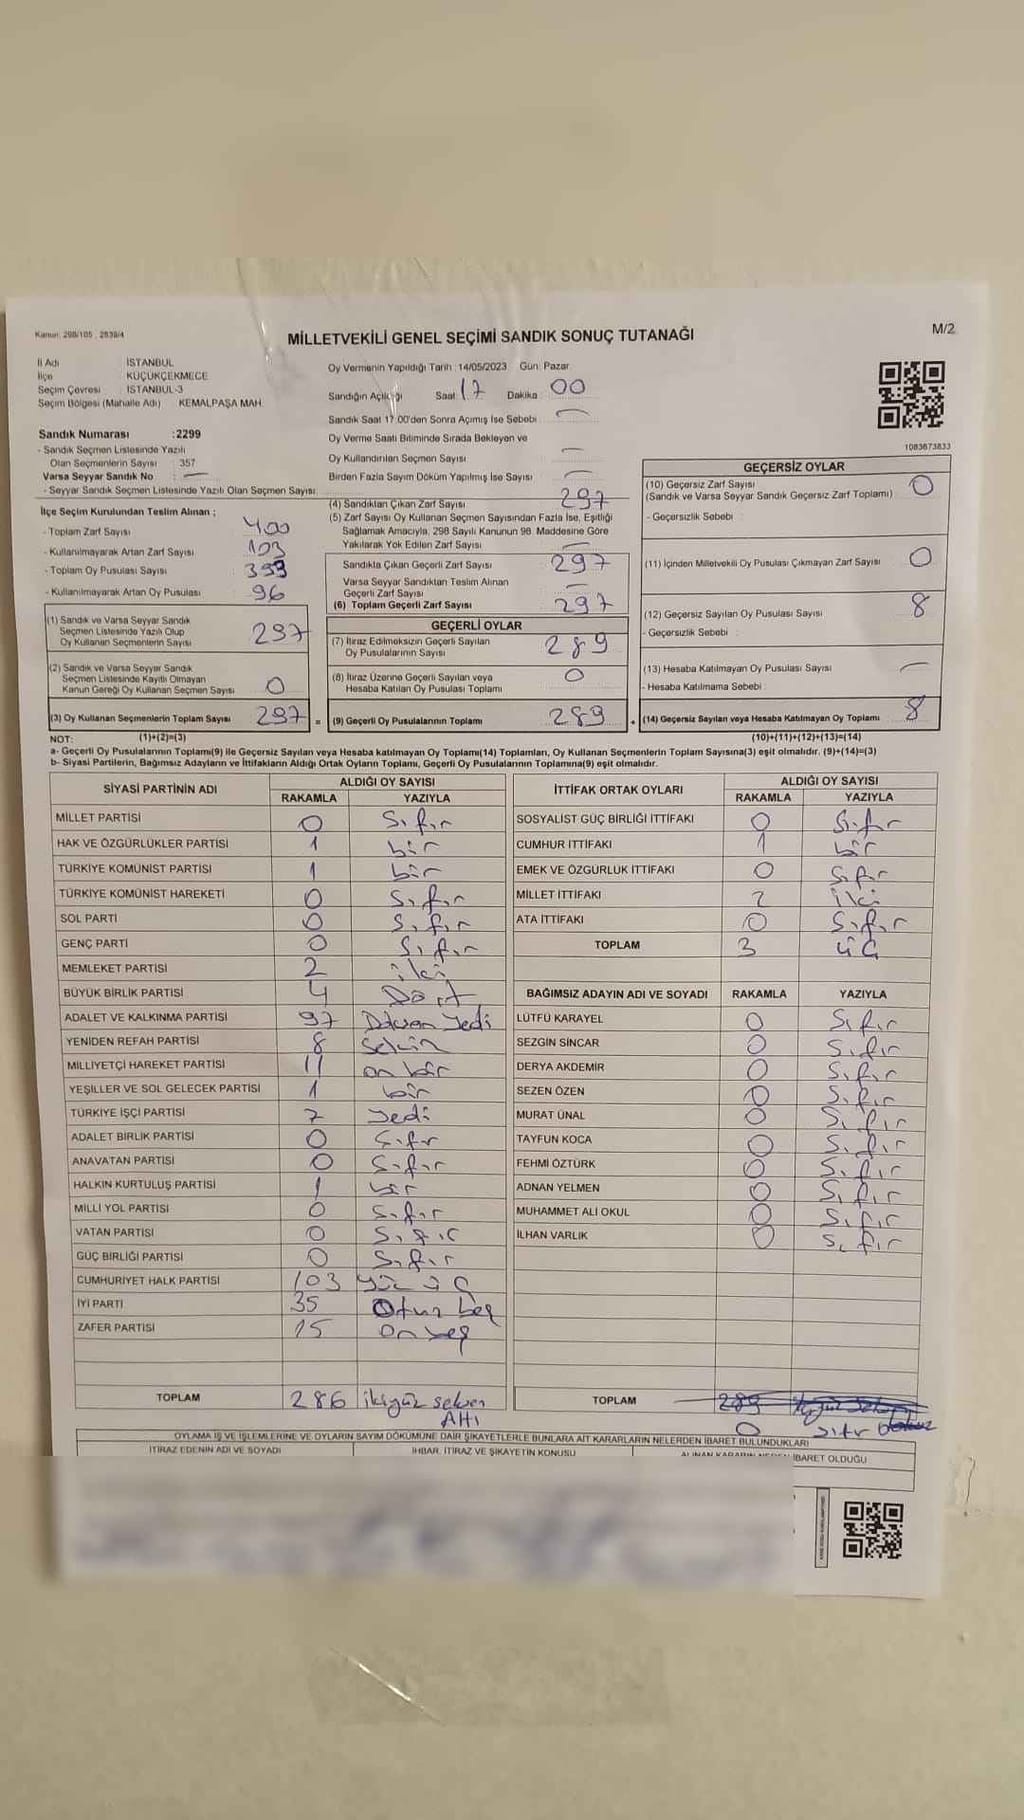 Kanun: 298/105 , 2839/4
MİLLETVEKİLİ GENEL SEÇİMİ SANDIK SONUÇ TUTANAĞI
M/2
İl Adı İSTANBUL
İlçe KÜÇÜKÇEKMECE
Seçim Çevresi : İSTANBUL-3
Seçim Bölgesi (Mahalle Adı) KEMALPAŞA MAH.
Sandık Numarası :2299
- Sandık Seçmen Listesinde Yazılı
Olan Seçmenlerin Sayısı : 357
Varsa Seyyar Sandık No : —
- Seyyar Sandık Seçmen Listesinde Yazılı Olan Seçmen Sayısı:
İlçe Seçim Kurulundan Teslim Alınan ;
- Toplam Zarf Sayısı 400
- Kullanılmayarak Artan Zarf Sayısı 103
- Toplam Oy Pusulası Sayısı 393
- Kullanılmayarak Artan Oy Pusulası 96
(1) Sandık ve Varsa Seyyar Sandık
Seçmen Listesinde Yazılı Olup
Oy Kullanan Seçmenlerin Sayısı 297
(2) Sandık ve Varsa Seyyar Sandık
Seçmen Listesinde Kayıtlı Olmayan
Kanun Gereği Oy Kullanan Seçmen Sayısı 0
(3) Oy Kullanan Seçmenlerin Toplam Sayısı 297 =
Oy Vermenin Yapıldığı Tarih : 14/05/2023 Gün: Pazar
Sandığın Açılış Saat: 17 Dakika : 00
Sandık Saat 17:00'den Sonra Açımış İse Sebebi : —
Oy Verme Saati Bitiminde Sırada Bekleyen ve
Oy Kullandırılan Seçmen Sayısı —
Birden Fazla Sayım Döküm Yapılmış İse Sayısı : —
(4) Sandıktan Çıkan Zarf Sayısı 297
(5) Zarf Sayısı Oy Kullanan Seçmen Sayısından Fazla İse, Eşitliği
Sağlamak Amacıyla, 298 Sayılı Kanunun 98. Maddesine Göre
Yakılarak Yok Edilen Zarf Sayısı —
Sandıkta Çıkan Geçerli Zarf Sayısı 297
Varsa Seyyar Sandıktan Teslim Alınan
Geçerli Zarf Sayısı —
(6) Toplam Geçerli Zarf Sayısı 297
GEÇERLİ OYLAR
(7) İtiraz Edilmeksizin Geçerli Sayılan
Oy Pusulalarının Sayısı 289
(8) İtiraz Üzerine Geçerli Sayılan veya
Hesaba Katılan Oy Pusulası Toplamı 0
(9) Geçerli Oy Pusulalarının Toplamı 289 +
1083673833
GEÇERSİZ OYLAR
(10) Geçersiz Zarf Sayısı 0
(Sandık ve Varsa Seyyar Sandık Geçersiz Zarf Toplamı)
- Geçersizlik Sebebi :
(11) İçinden Milletvekili Oy Pusulası Çıkmayan Zarf Sayısı 0
(12) Geçersiz Sayılan Oy Pusulası Sayısı 8
- Geçersizlik Sebebi :
(13) Hesaba Katılmayan Oy Pusulası Sayısı —
- Hesaba Katılmama Sebebi :
(14) Geçersiz Sayılan veya Hesaba Katılmayan Oy Toplamı 8
NOT: (1)+(2)=(3) (10)+(11)+(12)+(13)=(14)
a- Geçerli Oy Pusulalarının Toplamı(9) ile Geçersiz Sayılan veya Hesaba katılmayan Oy Toplamı(14) Toplamları, Oy Kullanan Seçmenlerin Toplam Sayısına(3) eşit olmalıdır. (9)+(14)=(3)
b- Siyasi Partilerin, Bağımsız Adayların ve İttifakların Aldığı Ortak Oyların Toplamı, Geçerli Oy Pusulalarının Toplamına(9) eşit olmalıdır.
SİYASİ PARTİNİN ADI ALDIĞI OY SAYISI
RAKAMLA YAZIYLA
MİLLET PARTİSİ 0 Sıfır
HAK VE ÖZGÜRLÜKLER PARTİSİ 1 bir
TÜRKİYE KOMÜNİST PARTİSİ 1 bir
TÜRKİYE KOMÜNİST HAREKETİ 0 Sıfır
SOL PARTİ 0 Sıfır
GENÇ PARTİ 0 Sıfır
MEMLEKET PARTİSİ 2 iki
BÜYÜK BİRLİK PARTİSİ 4 Dört
ADALET VE KALKINMA PARTİSİ 97 Doksan Yedi
YENİDEN REFAH PARTİSİ 8 Sekiz
MİLLİYETÇİ HAREKET PARTİSİ 11 on bir
YEŞİLLER VE SOL GELECEK PARTİSİ 1 bir
TÜRKİYE İŞÇİ PARTİSİ 7 Yedi
ADALET BİRLİK PARTİSİ 0 Sıfır
ANAVATAN PARTİSİ 0 Sıfır
HALKIN KURTULUŞ PARTİSİ 1 bir
MİLLİ YOL PARTİSİ 0 Sıfır
VATAN PARTİSİ 0 Sıfır
GÜÇ BİRLİĞİ PARTİSİ 0 Sıfır
CUMHURİYET HALK PARTİSİ 103 Yüz üç
İYİ PARTİ 35 Otuz beş
ZAFER PARTİSİ 15 on beş
TOPLAM 286 ikiyüz seksen
Altı
İTTİFAK ORTAK OYLARI ALDIĞI OY SAYISI
RAKAMLA YAZIYLA
SOSYALİST GÜÇ BİRLİĞİ İTTİFAKI 0 Sıfır
CUMHUR İTTİFAKI 1 bir
EMEK VE ÖZGÜRLÜK İTTİFAKI 0 Sıfır
MİLLET İTTİFAKI 2 iki
ATA İTTİFAKI 0 Sıfır
TOPLAM 3 üç
BAĞIMSIZ ADAYIN ADI VE SOYADI RAKAMLA YAZIYLA
LÜTFÜ KARAYEL 0 Sıfır
SEZGİN SİNCAR 0 Sıfır
DERYA AKDEMİR 0 Sıfır
SEZEN ÖZEN 0 Sıfır
MURAT ÜNAL 0 Sıfır
TAYFUN KOCA 0 Sıfır
FEHMİ ÖZTÜRK 0 Sıfır
ADNAN YELMEN 0 Sıfır
MUHAMMET ALİ OKUL 0 Sıfır
İLHAN VARLIK 0 Sıfır
TOPLAM 289
0 Sıfır
OYLAMA İŞ VE İŞLEMLERİNE VE OYLARIN SAYIM DÖKÜMÜNE DAİR ŞİKAYETLERLE BUNLARA AİT KARARLARIN NELERDEN İBARET BULUNDUKLARI
İTİRAZ EDENİN ADI VE SOYADI İHBAR, İTİRAZ VE ŞİKAYETİN KONUSU ALINAN KARARIN NEDEN İBARET OLDUĞU